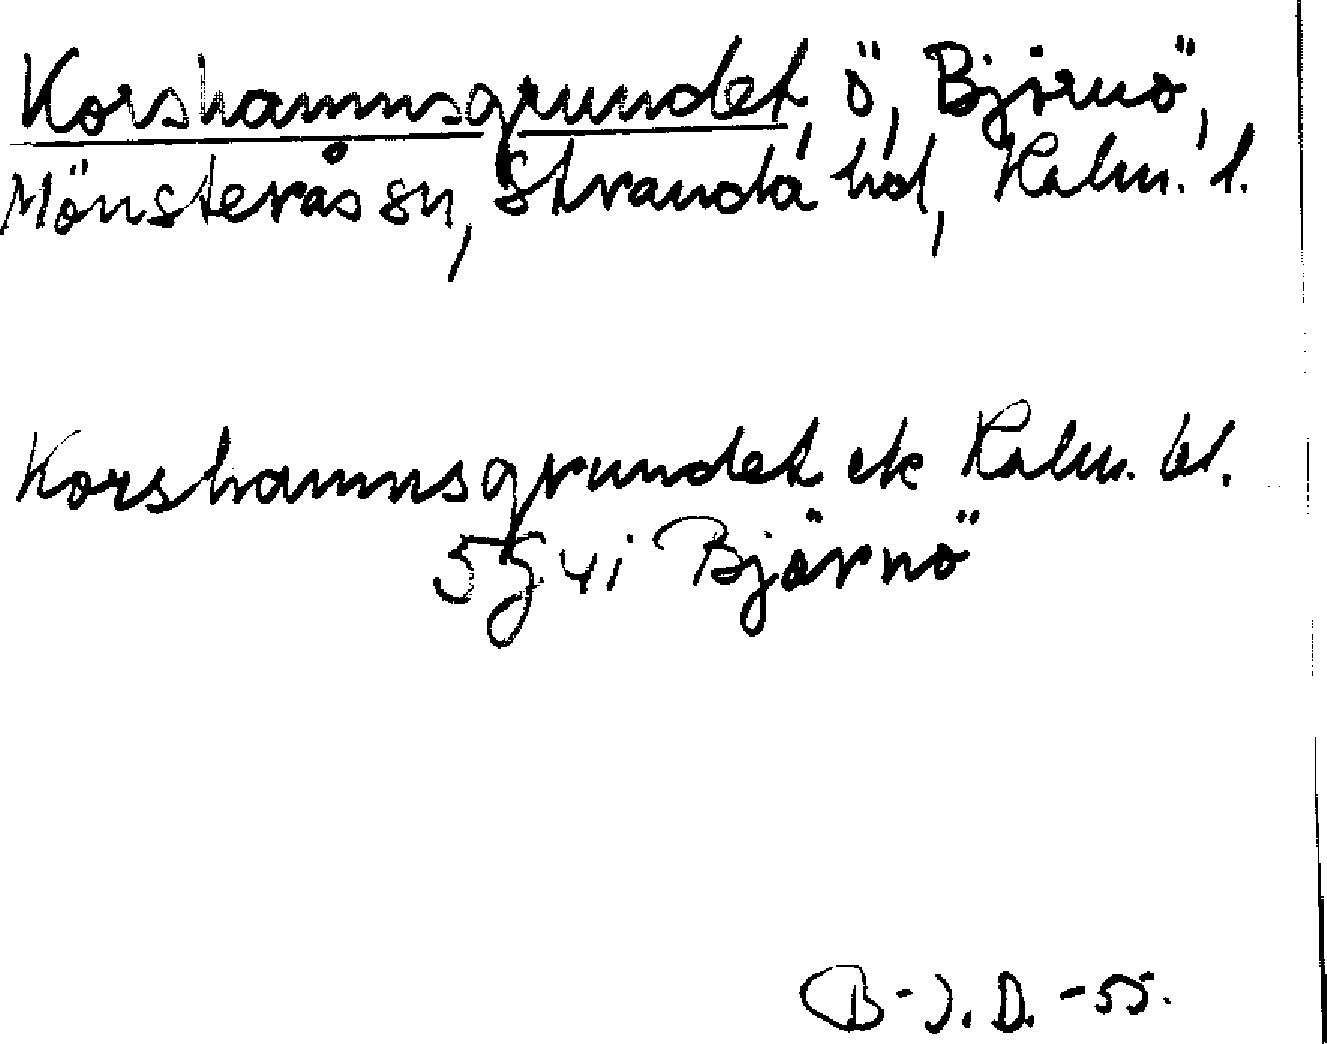 Korshamnsgrundet, ö, Björnö,
Mönsterås sn, Stranda hd, Kalm. l.
Korshamnsgrundet ek Kalm. bl.
5g4i Björnö
B-J.D. -55.